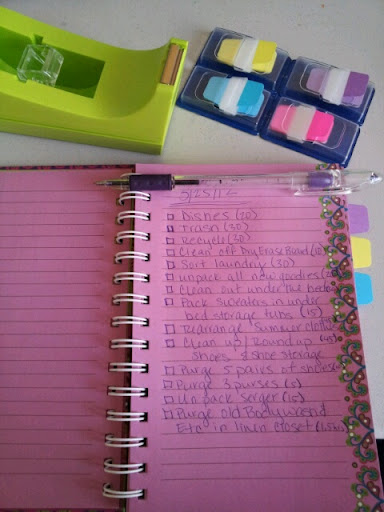 5/25/12
Dishes (20)
Trash (30)
Recycle (30)
Clean off Dry Erase Board (10)
Sort laundry (30)
unpack all new goodies (20)
Clean out under the bed
Pack Sweaters in under
bed storage tubs (15)
Rearrange Summer clothes
Clean up/Round up (45)
Shoes & shoe storage
Purge 5 pairs of shoes
Purge 3 purses (5)
Unpack serger (15)
Purge old Body wash and
Etc in linen closet